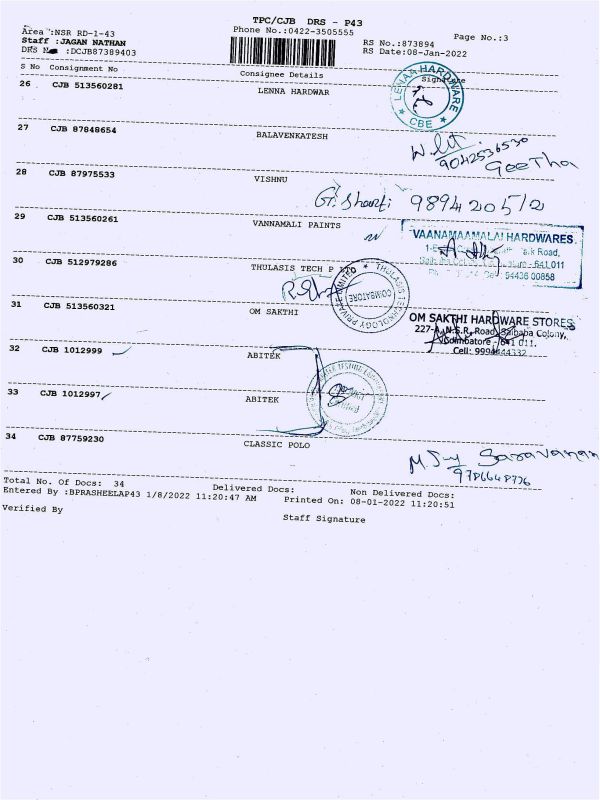 TPC/CJB DRS - P43
Area :NSR RD-1-43
Phone No.:0422-3505555
Page No.:3
Staff :JAGAN NATHAN
RS No.:873894
DRS :DCJB87389403
RS Date:08-Jan-2022
S No Consignment No Consignee Details Signature
26 CJB 513560281 LENNA HARDWAR
LENAA HARDWARE
★ CBE ★
27 CJB 87848654 BALAVENKATESH
9042536530
GeeTha
28 CJB 87975533 VISHNU
G. Shanti 989420512
29 CJB 513560261 VANNAMALI PAINTS
VAANAMAAMALAI HARDWARES
Road,
641 011
94436 00858
30 CJB 512979286 THULASIS TECH P LTD
THULASI TECHNOLOGY PRIVATE LIMITED
COIMBATORE
31 CJB 513560321 OM SAKTHI
OM SAKTHI HARDWARE STORES
227-A, N.S.R. Road, Saibaba Colony,
Coimbatore - 641 011.
Cell: 9994444332
32 CJB 1012999 ABITEK
33 CJB 1012997 ABITEK
34 CJB 87759230 CLASSIC POLO
Saravanan
Total No. Of Docs: 34 Delivered Docs: Non Delivered Docs:
Entered By :BPRASHEELAP43 1/8/2022 11:20:47 AM Printed On: 08-01-2022 11:20:51
Verified By
Staff Signature